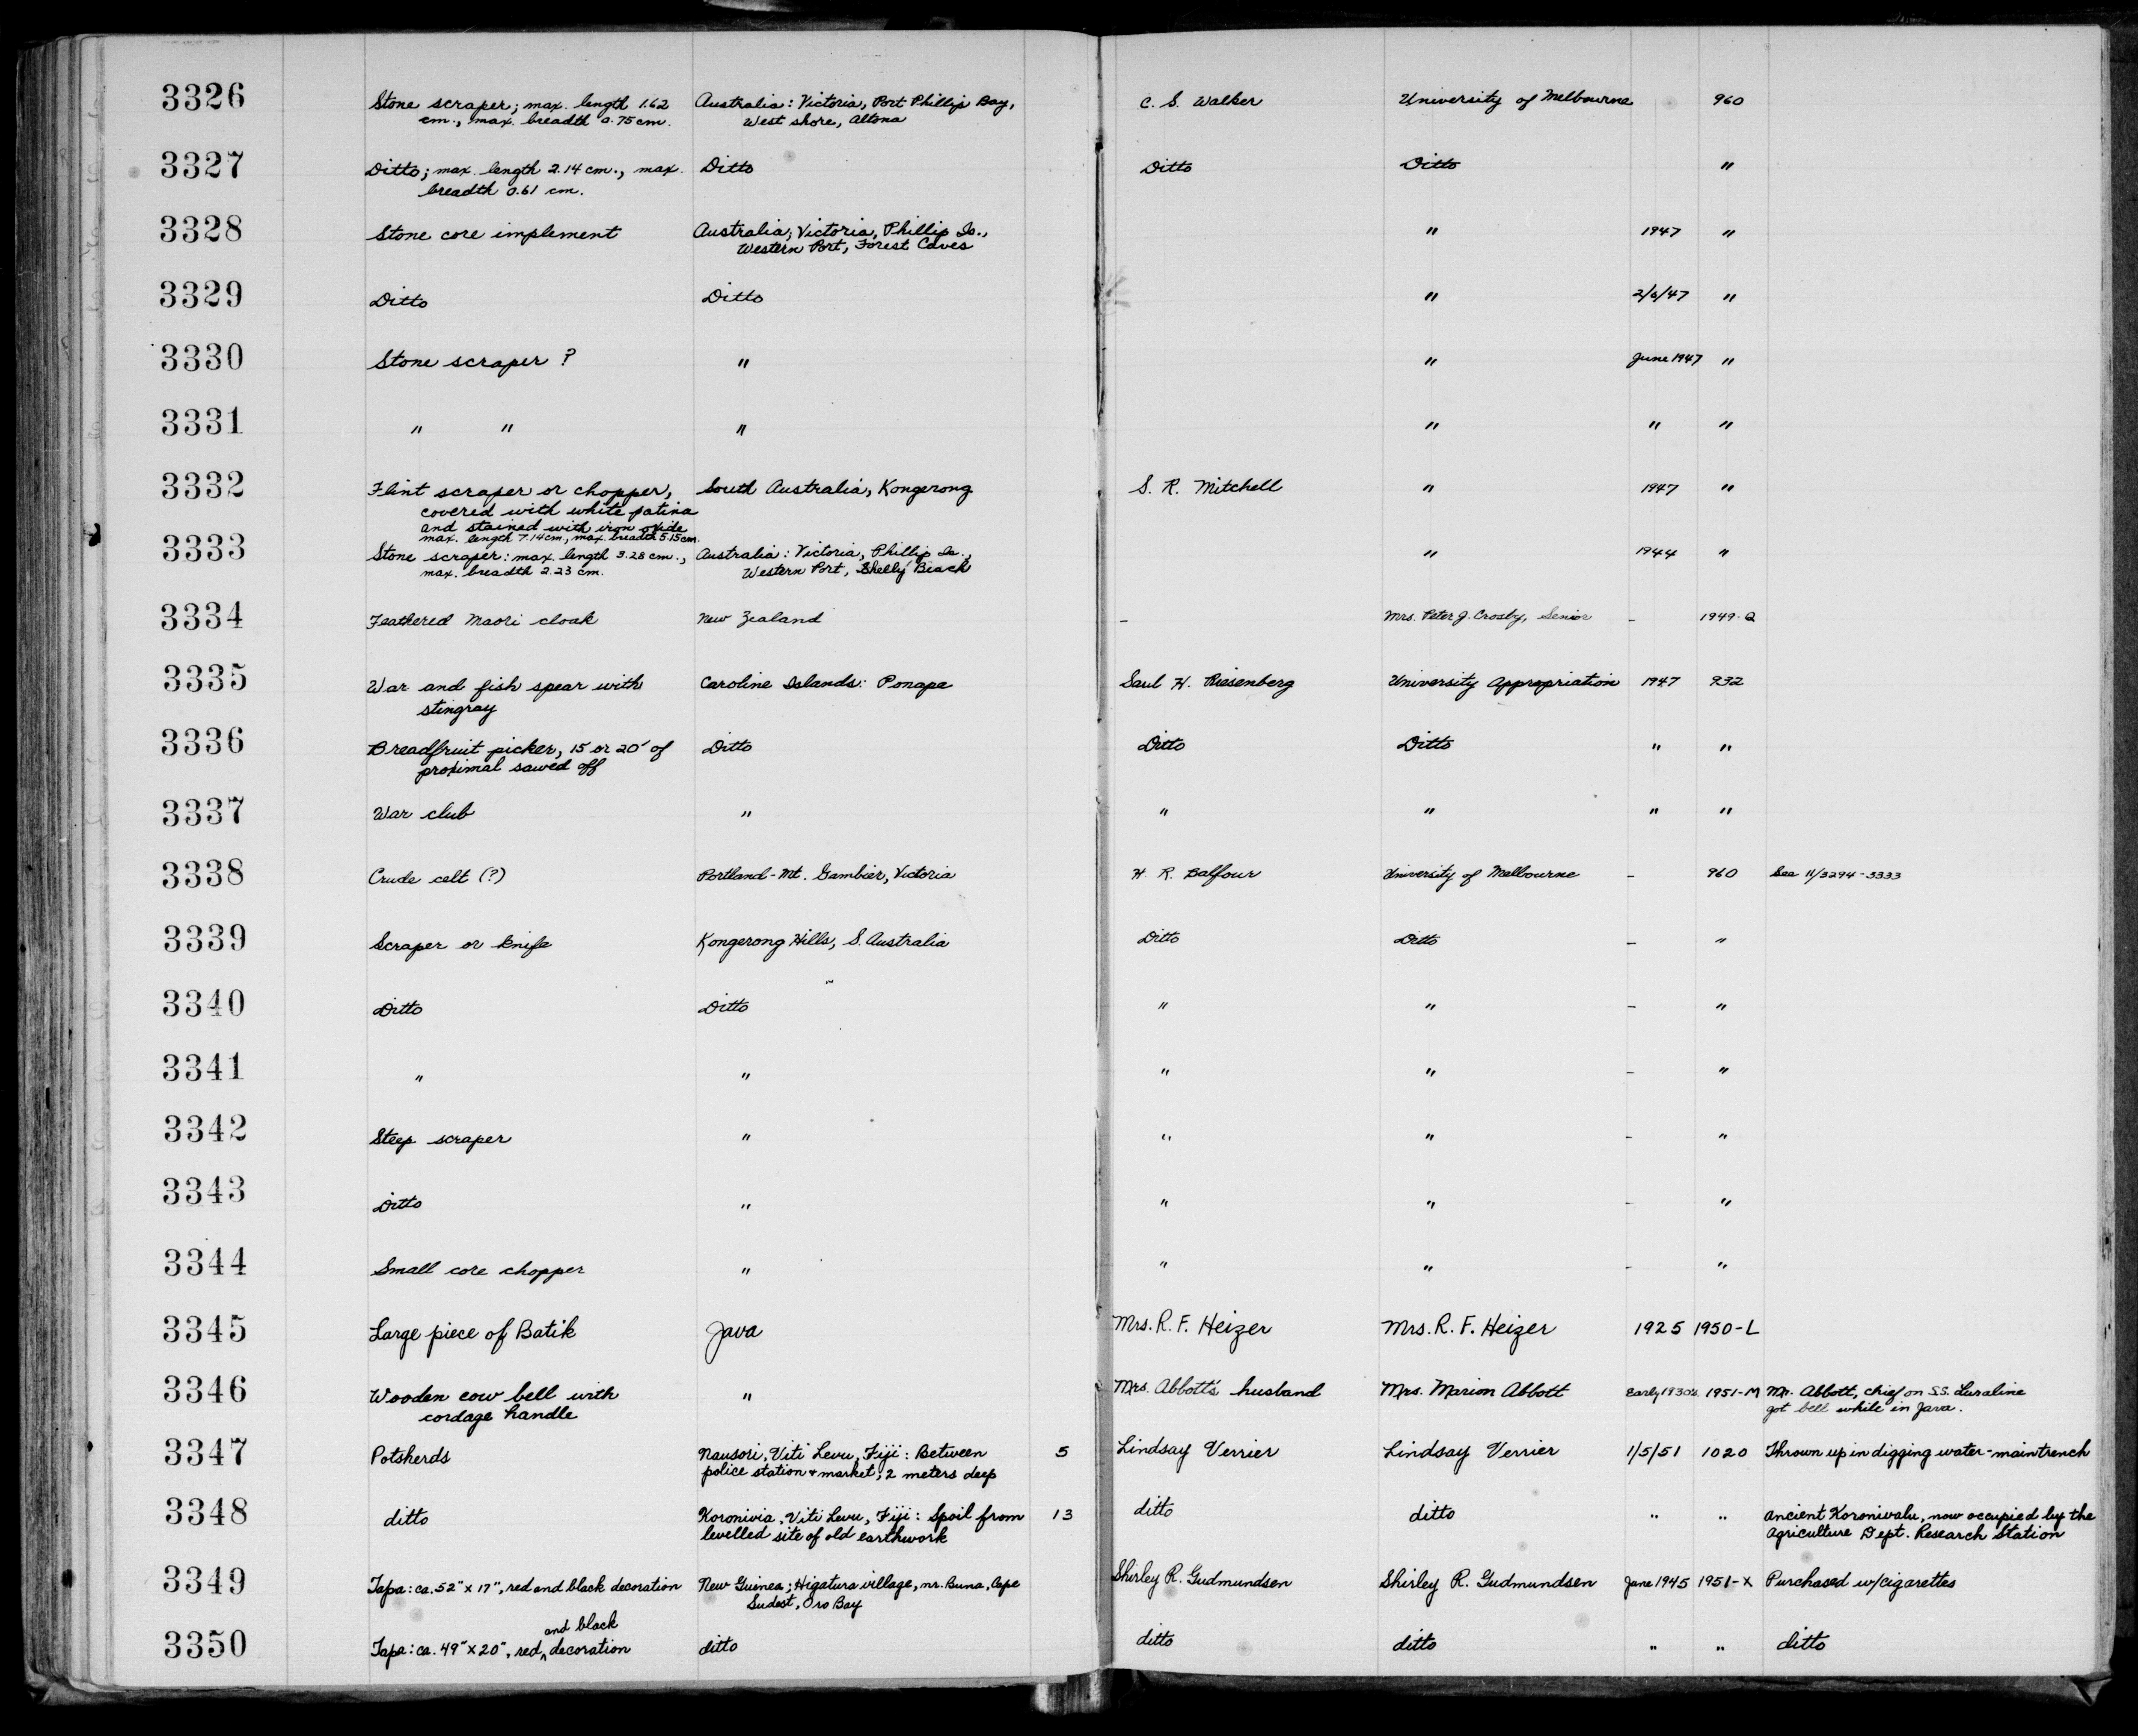 3326 Stone scraper; max. length 1.62 Australia: Victoria, Port Phillip Bay, C. S. Walker University of Melbourne 960
cm., max. breadth 0.75 cm. West shore, Altona
3327 Ditto; max. length 2.14 cm., max. Ditto Ditto Ditto "
breadth 0.61 cm.
3328 Stone core implement Australia; Victoria, Phillip Is., " 1947 "
Western Port, Forest Caves
3329 Ditto Ditto " 2/6/47 "
3330 Stone scraper ? " " June 1947 "
3331 " " " " " "
3332 Flint scraper or chopper, South Australia, Kongerong S. R. Mitchell " 1947 "
covered with white patina
and stained with iron oxide
max. length 7.14 cm., max. breadth 5.15 cm.
3333 Stone scraper: max. length 3.28 cm., Australia: Victoria, Phillip Is., " 1944 "
max. breadth 2.23 cm. Western Port, Shelly Beach
3334 Feathered Maori cloak New Zealand - Mrs. Peter J. Crosby, Senior - 1949-Q
3335 War and fish spear with Caroline Islands: Ponape Saul H. Riesenberg University Appropriation 1947 932
stingray
3336 Breadfruit picker, 15 or 20' of Ditto Ditto Ditto " "
proximal sawed off
3337 War club " " " " "
3338 Crude celt (?) Portland-Mt. Gambier, Victoria H. R. Balfour University of Melbourne - 960 See 11/3294-3333
3339 Scraper or knife Kongerong Hills, S. Australia Ditto Ditto - "
3340 Ditto Ditto " " - "
3341 " " " " - "
3342 Steep scraper " " " - "
3343 Ditto " " " - "
3344 Small core chopper " " " - "
3345 Large piece of Batik Java Mrs. R. F. Heizer Mrs. R. F. Heizer 1925 1950-L
3346 Wooden cow bell with " Mrs. Abbott's husband Mrs. Marion Abbott Early 1930's 1951-M Mr. Abbott, chief on S.S. Lurline
cordage handle got bell while in Java.
3347 Potsherds Nausori, Viti Levu, Fiji: Between 5 Lindsay Verrier Lindsay Verrier 1/5/51 1020 Thrown up in digging water-main trench
police station + market; 2 meters deep
3348 ditto Koronivia, Viti Levu, Fiji: Spoil from 13 ditto ditto " " ancient Koronivalu, now occupied by the
levelled site of old earthwork Agriculture Dept. Research Station
3349 Tapa: ca. 52" x 17", red and black decoration New Guinea; Higatura village, nr. Buna, Cape Shirley R. Gudmundsen Shirley R. Gudmundsen June 1945 1951-X Purchased w/cigarettes
Sudest, Oro Bay
and black
3350 Tapa: ca. 49" x 20", red ^ decoration ditto ditto ditto " " ditto